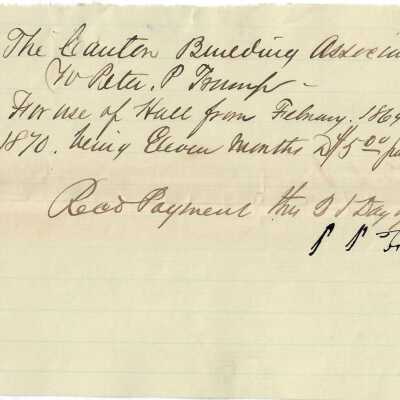 The Canton Building Associa
To Peter. P Trump -
For use of Hall from Febuary. 1869
1870. being Eleven Months @ $5.00 pr
Recd Payment this Day
P P Tr